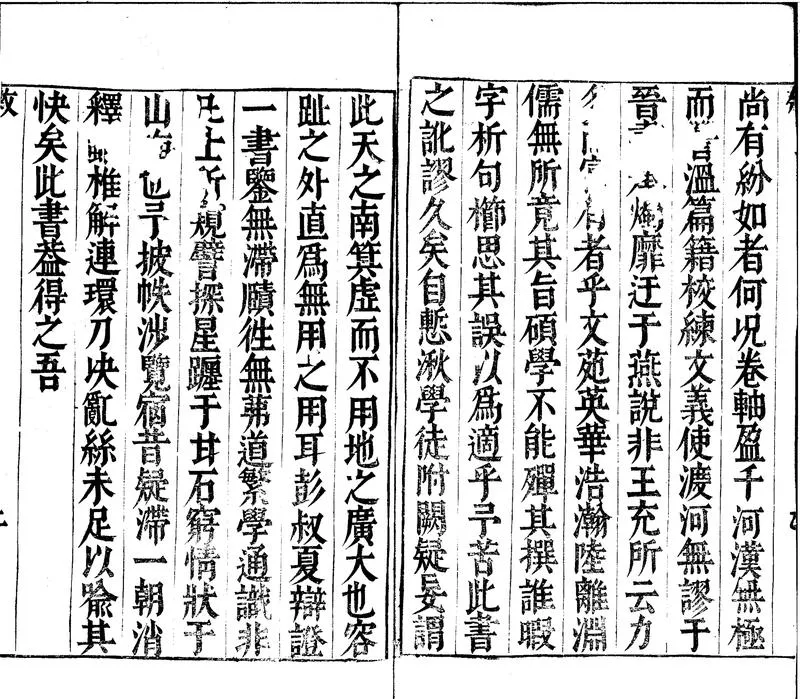 尚有紛如者何况卷軸盈千河漢無極
而溫篇籍校練文義使渡河無謬于
晉燭靡迂于燕說非王充所云力
者乎文苑英華浩瀚陸離淵
儒無所竟其旨碩學不能殫其撰誰暇
字析句櫛思其誤以爲適乎予苦此書
之訛謬久矣自慙湫學徒附闕疑妄謂
此天之南箕虛而不用地之廣大也容
趾之外直爲無用之用耳彭叔夏辯證
一書鑒無滯賾徃無茀道繁學通識非
上所覬譬探星躔于甘石窮情狀于
山海也予披帙涉覽宿昔疑滯一朝消
釋椎解連環刀决亂絲未足以喻其
快矣此書葢得之吾